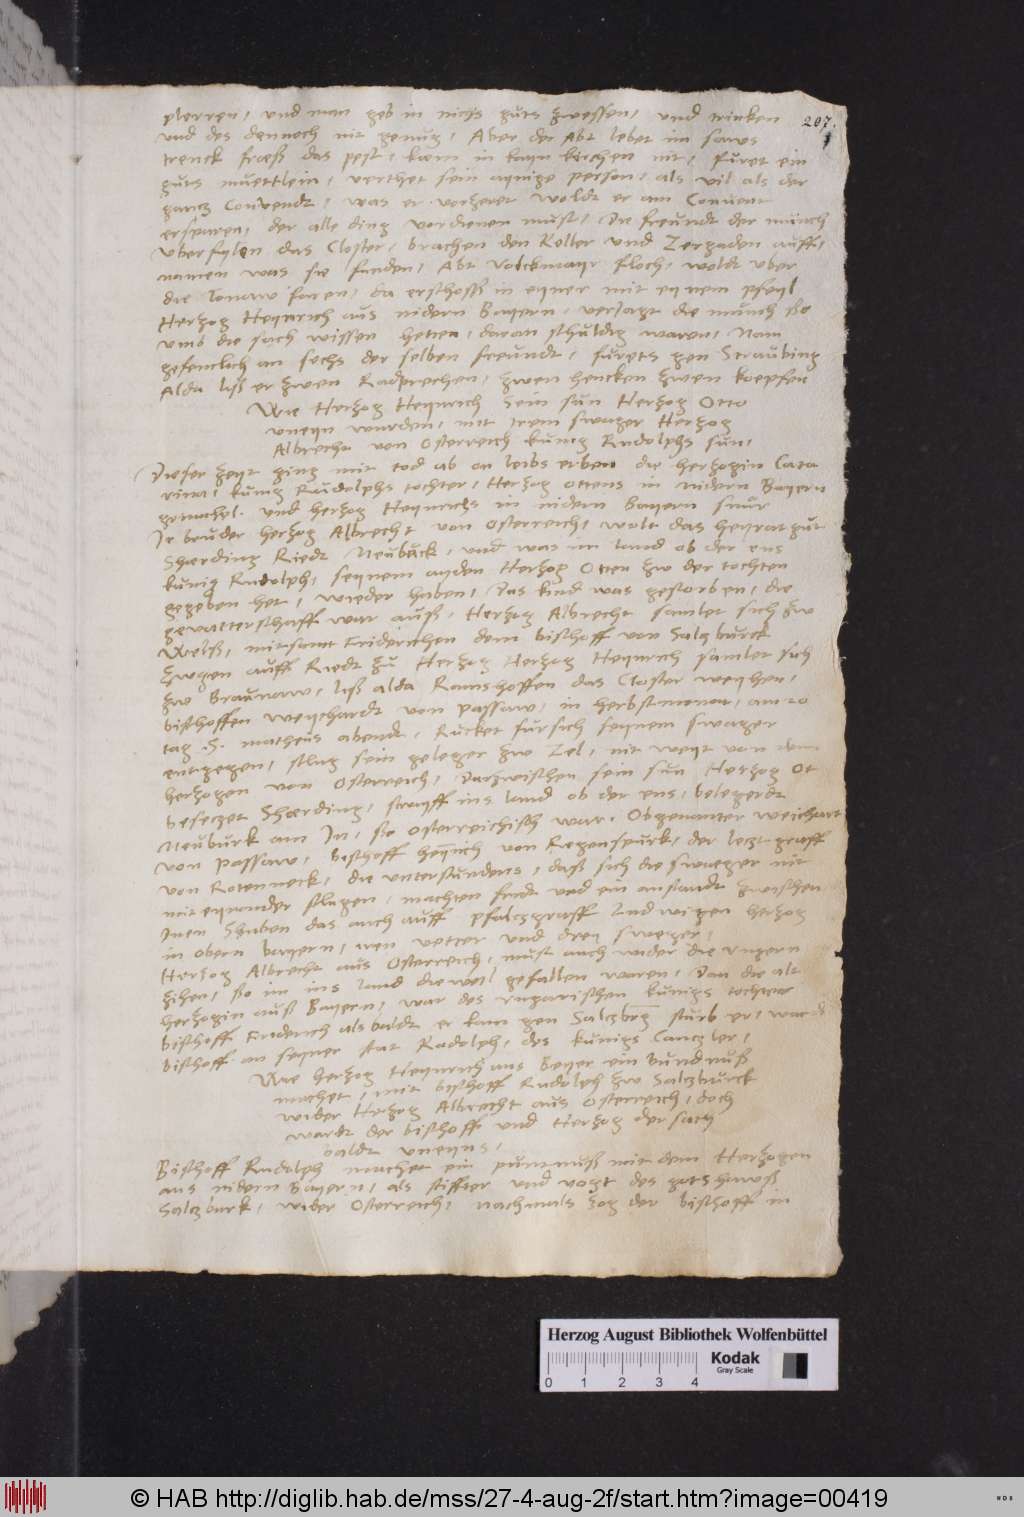 plerren, und man geb in nichs guts zwessen, und trinken
207.
und des dennoch nit genug, Aber der Abt lebet im saws
trenck fraeß das pest, kaem in kayn kirchen nit, furet ein
guts muettlein, verthet sein aynige person, als vil als der
gantz Convendt, was er verheret woldt er am Convent
ersparen, der alle ding verdienen must, Die freundt der münch
uberfylen das Closter, brachen den Keller und Zergaden auff,
namen was sie funden, Abt Volckmayr floch, woldt uber
die Tonaw faren, da erschosß in eyner mit eynem pfeyl
Hertzog Heynrich aus nidern Bayern, versagt die munch so
umb die sach wissen hetten, daran schuldig waren, Nam
gefencklich an sechs der selben freundt, furets gen Straubing
Alda liß er zwen Radprechen, zwen hencken zwen koepfen
Wie Hertzog Heynrich sein sun Hertzog Otto
uneyn wurden, mit irem swager Hertzog
Albrecht von Osterreich kunig Rudolphs sun,
Dieser zeyt ging mit tod ab on leibs erben die hertzogin Cata
rina, kunig Rudolphs tochter, Hertzog Ottens in Nidern Bayern
gemachel. und hertzog Heynrichs in nidern bayern snur
Ir bruder hertzog Albrecht von Osterreich, wolt das heyratgut
Shaerding Riedt Neuback, und was im land ob der ens
kunig Rudolph, seynem ayden Hertzog Otten zw der tochten
gegeben het, wieder haben, Das kind was gestorben, die
gevatterschafft war auß, Hertzog Albrecht samlet sich zw
Welß, mitsamt Friderichen dem bischoff von Saltzburck
Zwgen auff Riedt zu Hertzog Hertzog Heynrich samlet sich
zw Braunaw, liß alda Ramshoffen das Closter weyhen,
bischoffen Weychardt von Passaw, in herbstmonat, am 20
tag .S. matheus abendt, Rucket fursich seynem swager
entgegen, slug sein geleger zw Zel, nit weyt von dem
hertzogen von Osterreich, Dartzwischen sein sun Hertzog Ot
besetzet Shaerding, strayff ins land ob der ens, belegerdt
Neuburk am In, so osterreichisch war. Obgenanter weichart
von Passaw, bischoff heynrich von Regenspurk, der letzt graff
von Rotenneck, die unterstundens, daß sich die swaeger nit
mit eynander slugen, machten fridt und ein anstandt zwischen
Inen Shuben das auch auff pfaltzgraff Ludwigen hertzog
in obern bayern, iren vetter und drey sweger,
Hertzog Albrecht aus Osterreich, must auch wider die ungern
zihen, so im ins land dieweil gefallen waren, Dan die alt
hertzogin auß Bayern, war des ungarischen kunigs tochter
bischoff Friderich alsbaldt er kam gen Saltzbrg sturb er, wardt
bischoff an seyner stat Rudolph, des kunigs Cantzler,
Wie hertzog Heynrich aus Beyer ein bundnuß
machet, mit bischoff Rudolph zw Saltzburck
wider Hertzog Albrecht aus Osterreich, doch
wardt der bischoff und Hertzog der sach
baldt uneyns,
Bischoff Rudolph machet ein puntnuß mit dem Hertzogen
aus nidern Bayern, als stiffter und vogt des gotshawß
Saltzburk, wider Osterreich, nachmals zog der bischoff in
Herzog August Bibliothek Wolfenbüttel
Kodak
Gray Scale
0 1 2 3 4
© HAB http://diglib.hab.de/mss/27-4-aug-2f/start.htm?image=00419